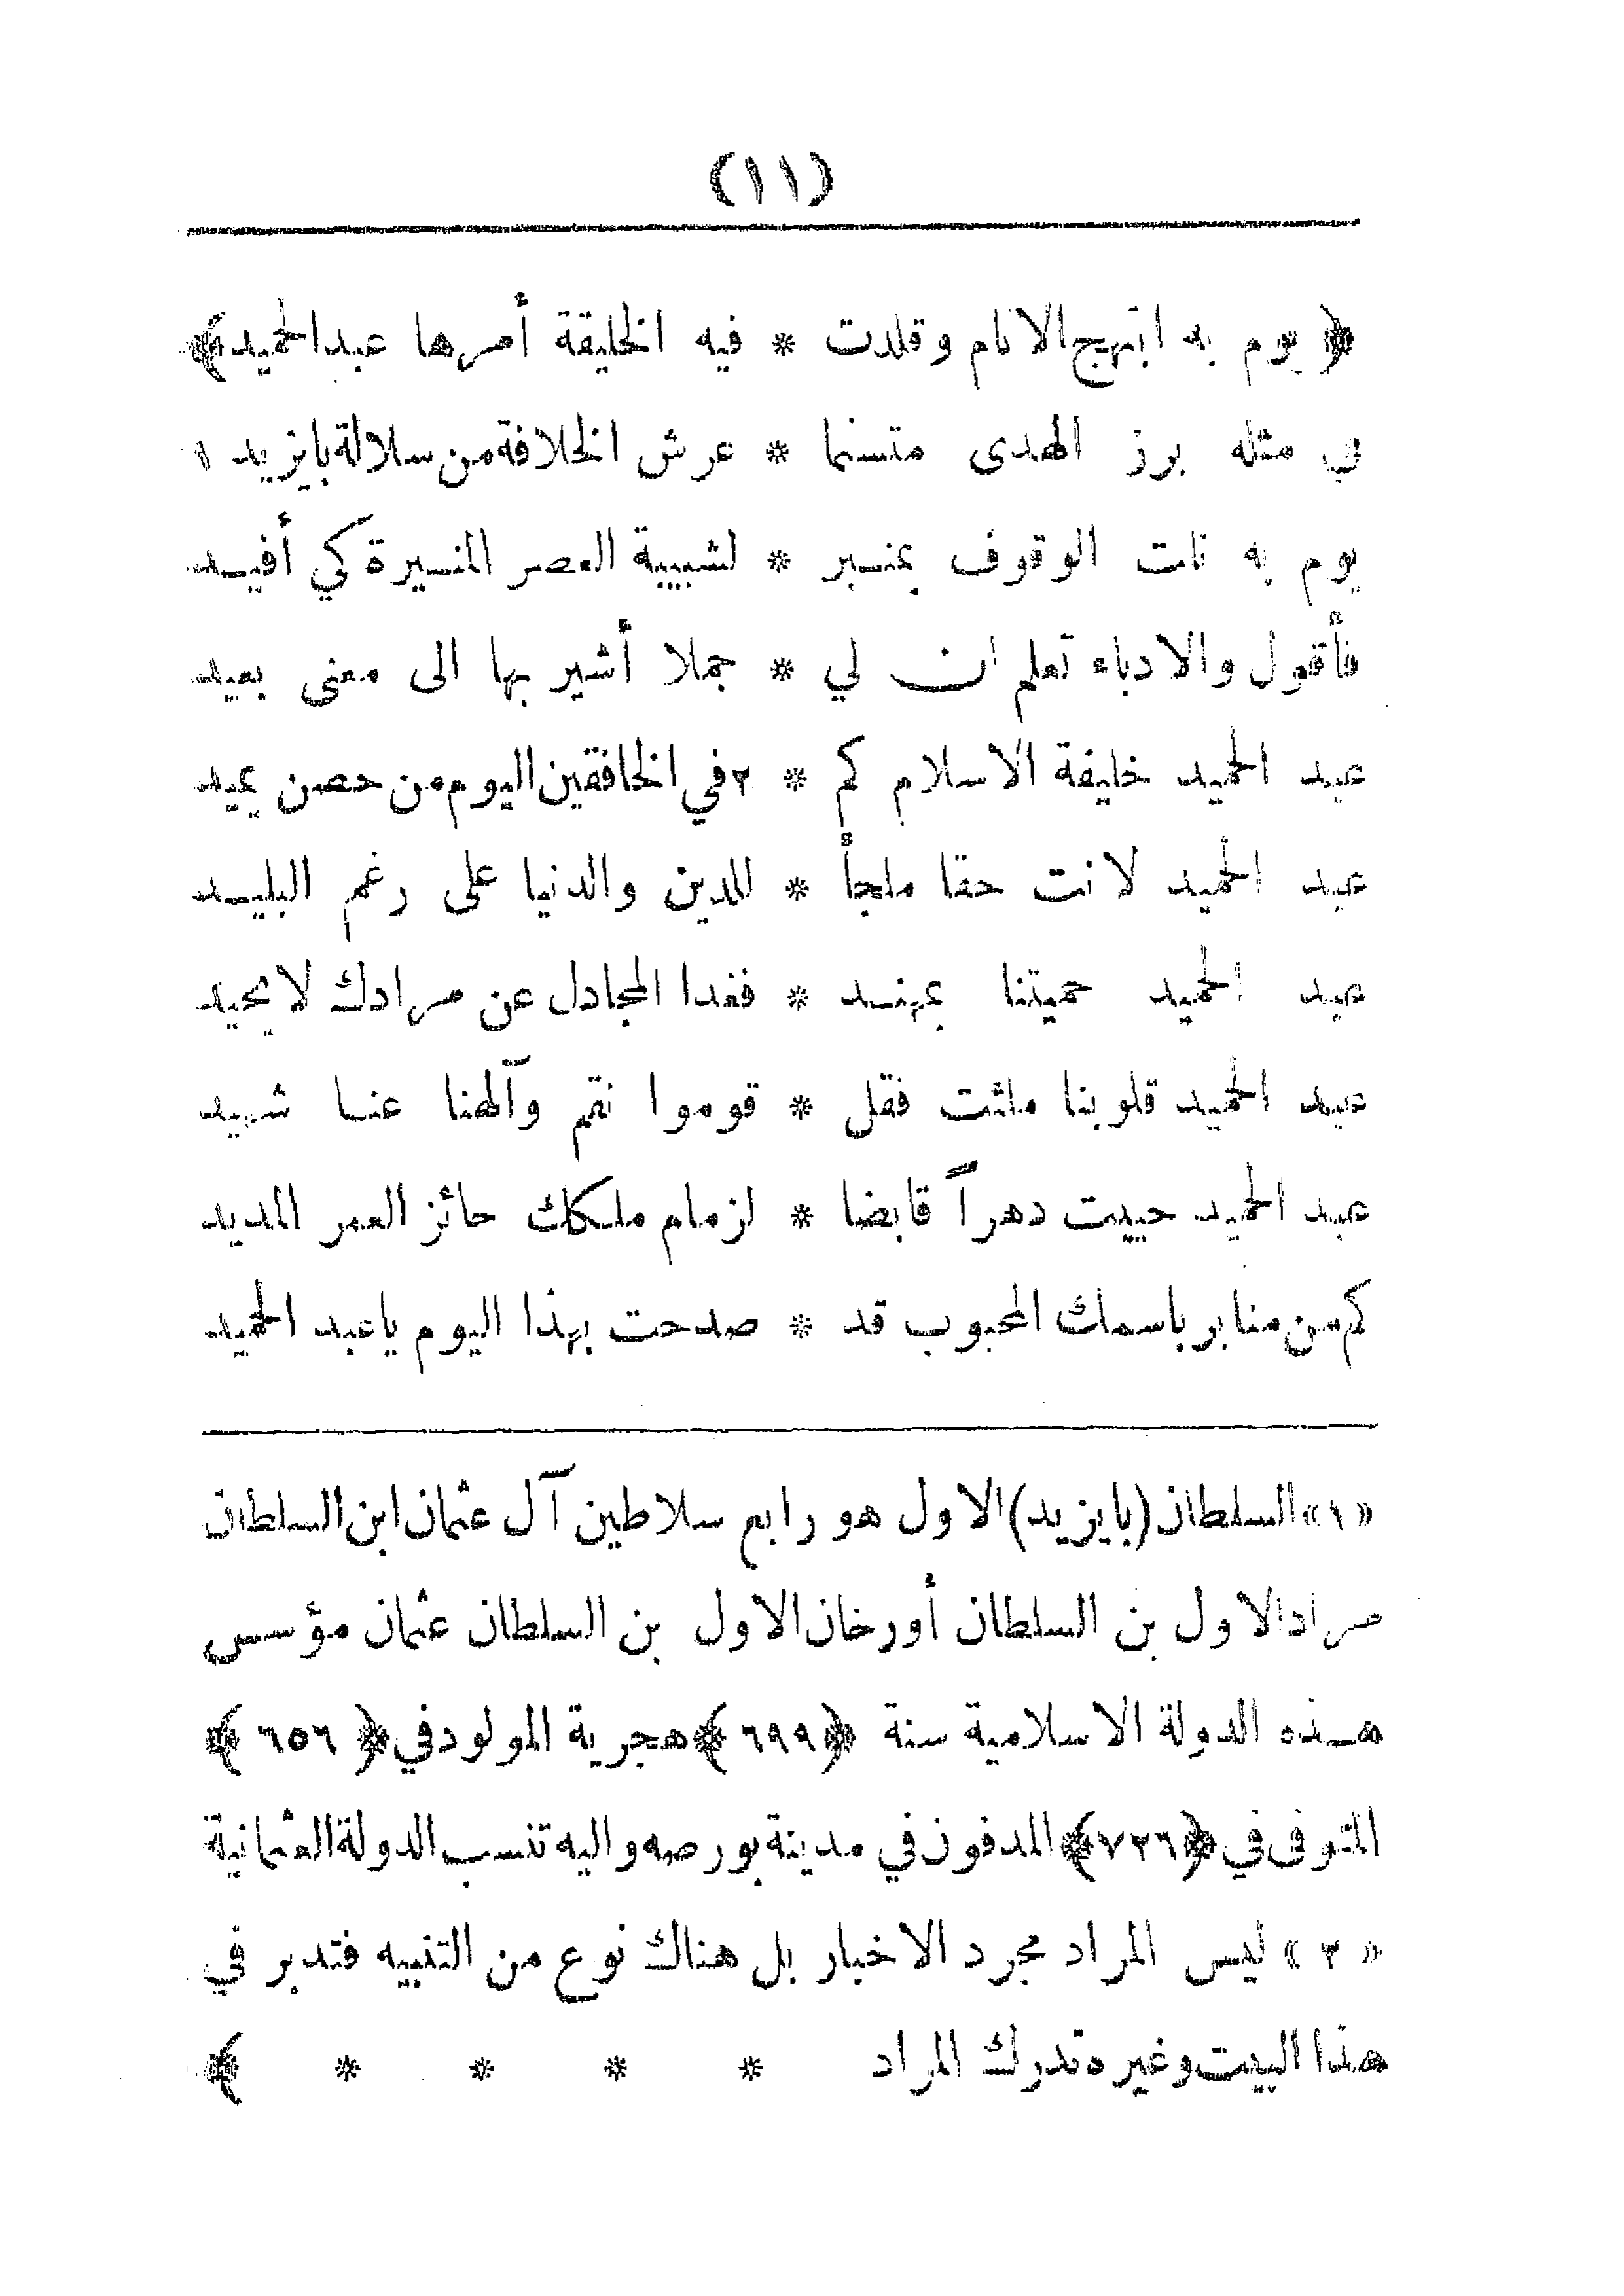 (١١)
﴿ يوم به ابتهج الانام وقلدت * فيه الخليقة أمرها عبدالحميد ﴾
في مثله برز الهدى متسنما * عرش الخلافة من سلالة بايزيد ١
يوم به نلت الوقوف بمنبر * لشبيبة العصر المنيرة كي أفيد
فأقول والادباء تعلم ان لي * جملا أشير بها الى معنى بعيد
عبد الحميد خليفة الاسلام كم * ٢ في الخافقين اليوم من حصن يميد
عبد الحميد لانت حقا ملجأ * للدين والدنيا على رغم البليد
عبد الحميد حميتنا بمهند * فغدا المجادل عن مرادك لا يحيد
عبد الحميد قلوبنا ملئت فقل * قوموا نقم وآلهنا عنا شهيد
عبد الحميد حييت دهراً قابضا * لزمام ملكك حائز العمر المديد
كم من منابر باسمك المحبوب قد * صدحت بهذا اليوم ياعبد الحميد
«١» السلطان (بايزيد) الاول هو رابع سلاطين آل عثمان ابن السلطان
مراد الاول بن السلطان أورخان الاول بن السلطان عثمان مؤسس
هذه الدولة الاسلامية سنة ﴿ ٦٩٩ ﴾ هجرية المولود في ﴿ ٦٥٦ ﴾
المتوفى في ﴿ ٧٢٦ ﴾ المدفون في مدينة بورصه واليه تنسب الدولة العثمانية
«٢» ليس المراد مجرد الاخبار بل هناك نوع من التنبيه فتدبر في
هذا البيت وغيره تدرك المراد * * * * ﴾